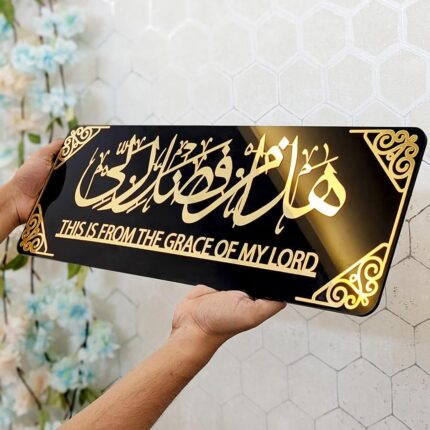 هذا من فضل ربي
THIS IS FROM THE GRACE OF MY LORD